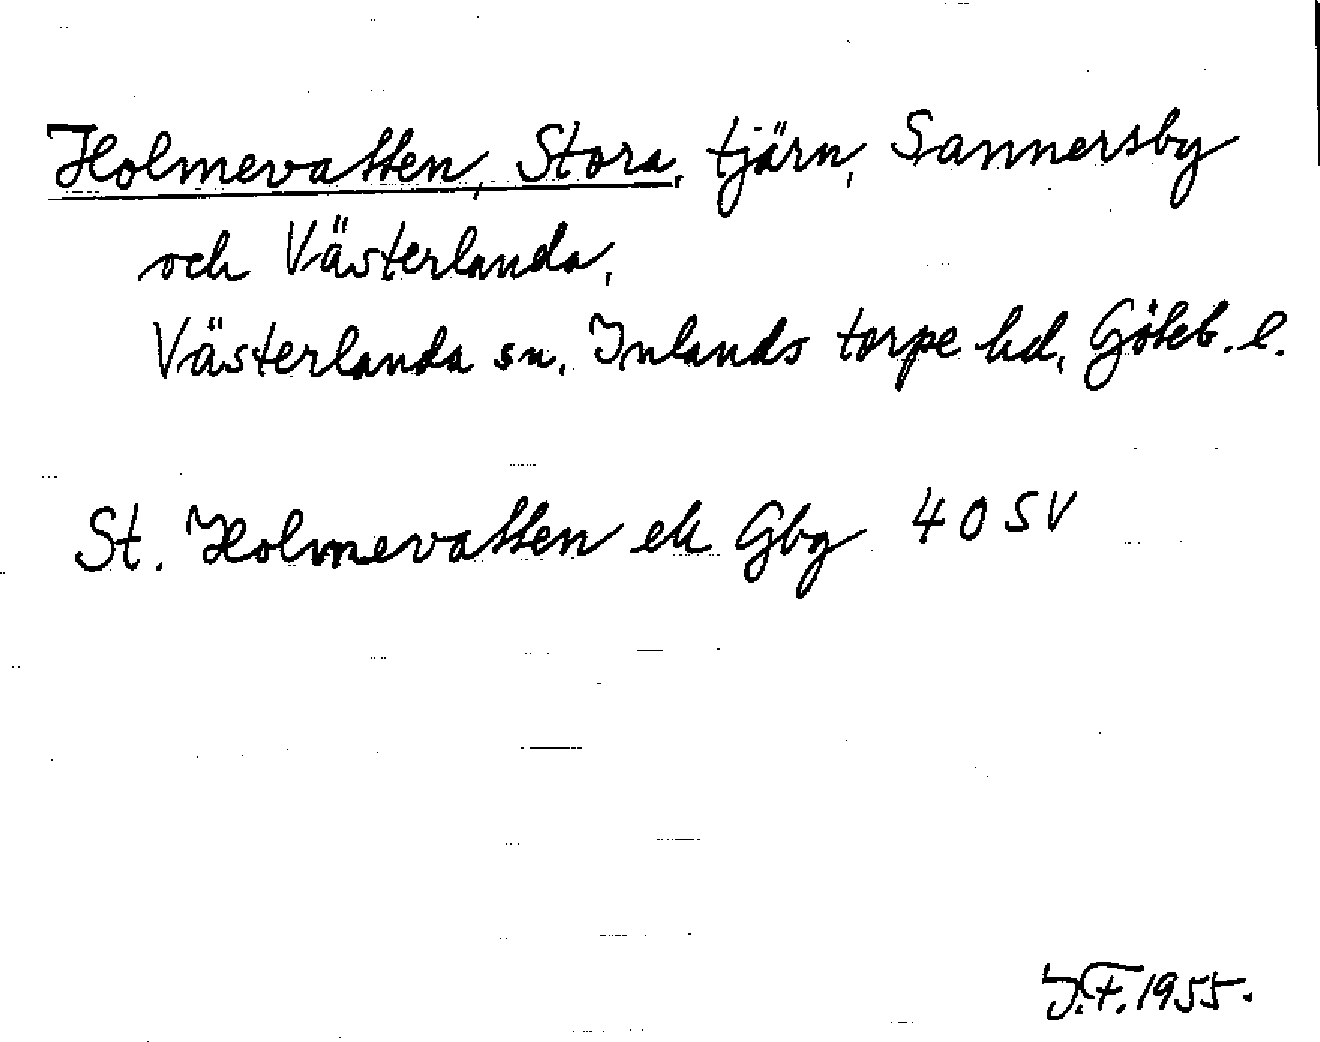 Holmevatten, Stora, tjärn, Sannersby
och Västerlanda,
Västerlanda sn. Inlands torpe hd, Göteb. l.
St. Holmevatten ek Gbg 40 SV
J.F. 1955.